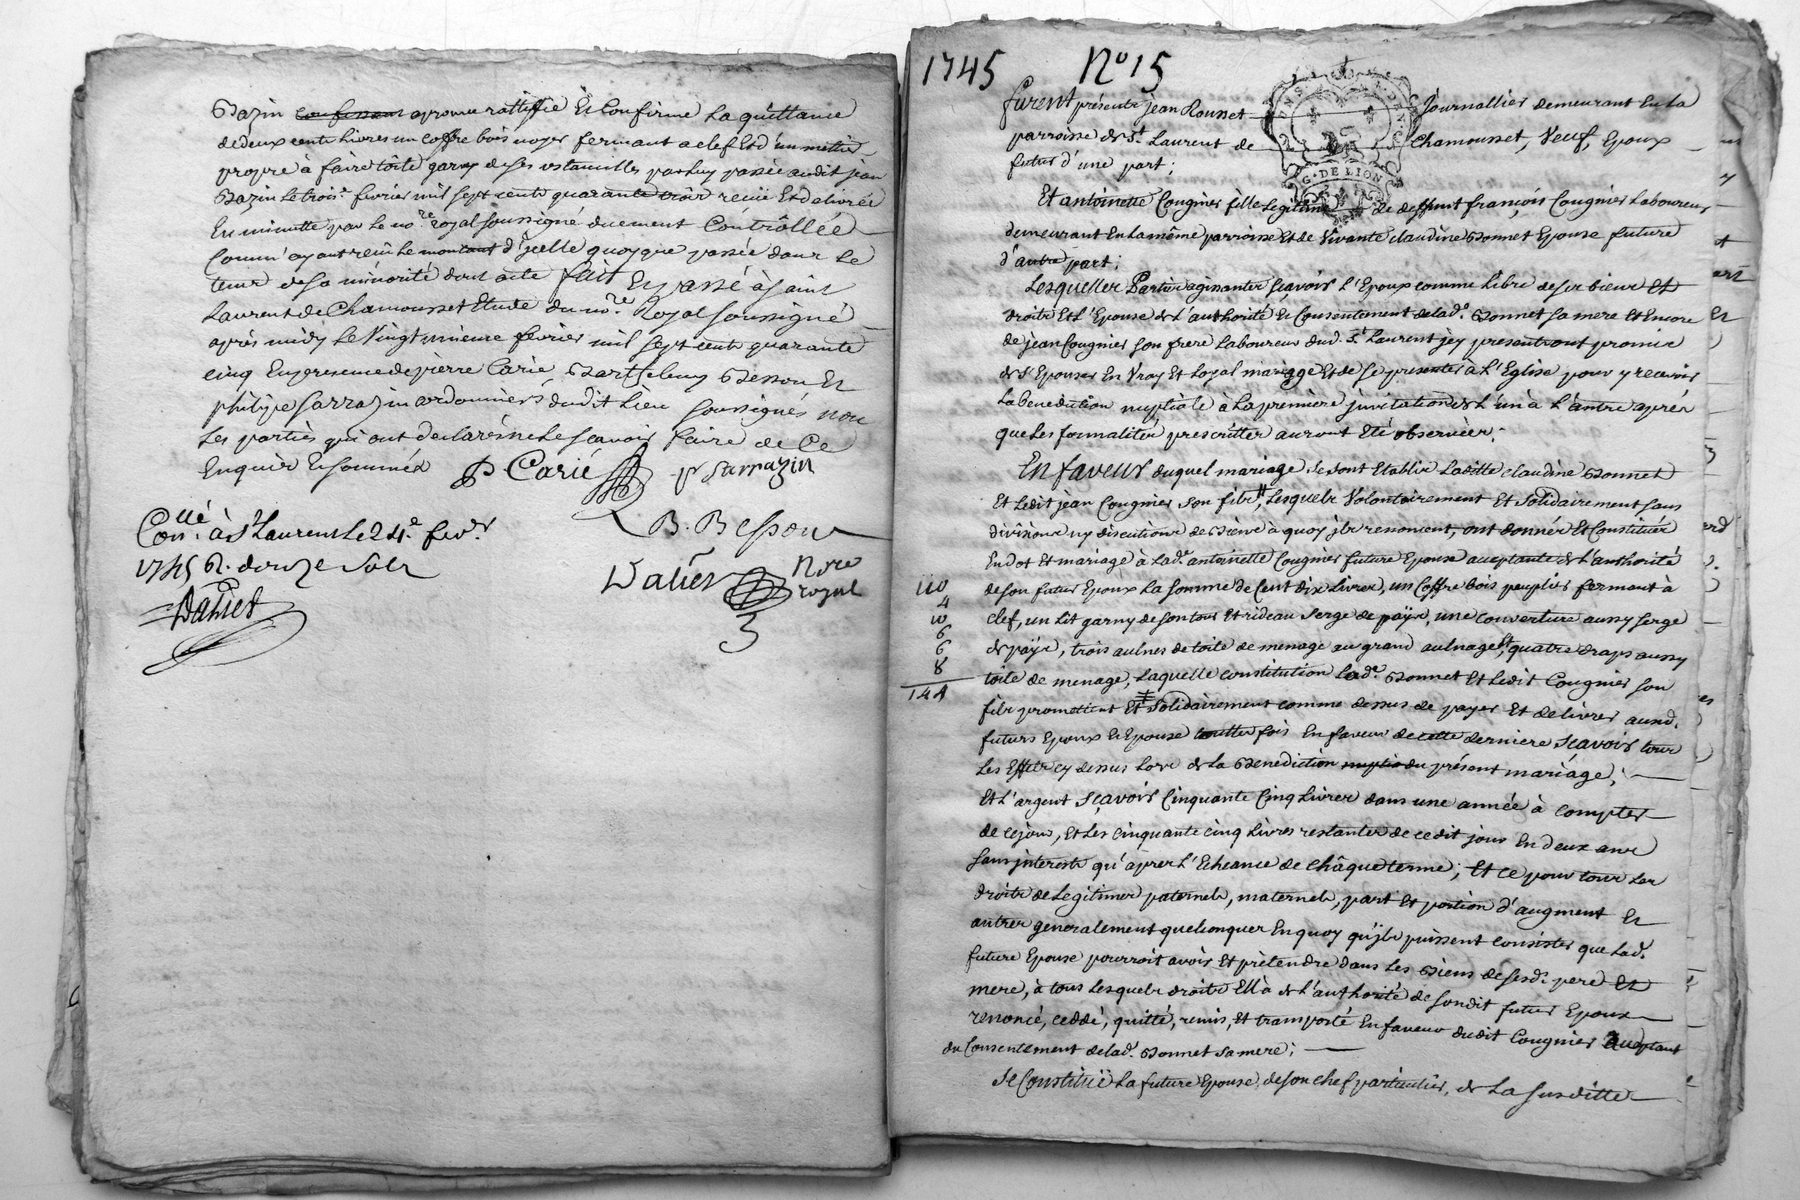 Bazin confessant aprouve rattiffie Et Confirme La quittance
de deux cents Livres un coffre bois noyer fermant a clef Et d'un mettier
propre à faire toile garny de ses ustancilles par luy passée audit jean
Bazin Le trois.e fevrier mil sept cents quarante trois reçüe Et delivrée
En minutte par le no.re royal soussigné duement Contrôllée
Comm' ayant reçu le montant d'jcelle quoyque passée dans Le
tems de sa minorité dont acte fait Et passé à saint
Laurent de Chamousset Etude du no.re Royal soussigné
après midy Le Vingt unieme fevrier mil sept cents quarante
cinq En presence de pierre Carié, Barthelemy Besson Et
philipe Sarrazin cordonniers dudit Lieu soussignés non
Les parties qui ont declaré ne Le scavoir faire de Ce
Enquis Et sommés P Carié p Sarrazin
B. Besson
Con.llé à S.t Laurent Le 24.e fev.r
1745 R. douze sols
Dalier
Dalier No.re
royal
1745 N.o 15
G. DE LION
furent présents Jean Rousset Journallier demeurant En La
parroisse de S.t Laurent de Chamousset, Veuf, Epoux
futur d'une part;
Et antoinette Cougnier fille Legitime de deffunt françois Cougnier Laboureur
demeurant En La même parroisse Et de Vivante claudine Bonnet Epouse future
d'autre part;
Lesquelles Parties agissantes sçavoir L'Epoux comme Libre de ses biens Et
droits Et L'Epouse de L'authorité Et Consentement de lad.e Bonnet sa mere Et Encore
de jean Cougnier son frere Laboureur dud. S.t Laurent jcy presents ont promis
de s'Epouser En Vray Et Loyal mariage Et de se presenter à L'Eglise pour y recevoir
La benediction nuptiale à La premiere jnvitation de L'un à L'autre après
que Les formalités prescrittes auront Eté observées;
En faveur duquel mariage se sont Etablis Laditte claudine Bonnet
Et Ledit jean Cougnier son fils, Lesquels Volontairement Et Solidairement sans
division ny discution de Biens à quoy jls renoncent, ont donné Et Constitué
En dot Et mariage à Lad.e antoinette Cougnier future Epouse acceptante de L'authorité
de son futur Epoux La somme de Cent dix Livres, un Coffre bois peuplier fermant à
clef, un Lit garny de son tour Et rideau serge de païs, une couverture aussy serge
de païs, trois aulnes de toile de menage au grand aulnage, Et quatre draps aussy
toile de menage, Laquelle constitution Lad.e Bonnet Et Ledit Cougnier son
fils promettent Et Solidairement comme dessus de payer Et delivrer ausd.
futurs Epoux Et Epouse touttes fois En faveur de cette derniere Sçavoir tous
Les Effets cy dessus Lors de La Benediction nuptiale du présent mariage;
Et L'argent Sçavoir Cinquante Cinq Livres dans une année à compter
de ce jour, Et Les Cinquante cinq Livres restantes de ce dit jour En deux ans
sans jnterests qu'après L'Echeance de châque terme; Et ce pour tous Les
droits de Legitimes paternels, maternels, part Et portion d'augment Et
autres generalement quelconques En quoy qu'jls puissent consister que Lad.e
future Epouse pourroit avoir Et prétendre dans Les Biens de sesd. pere Et
mere, à tous Lesquels droits Ell'a de L'authorité de sondit futur Epoux
renoncé, ceddé, quitté, remis, Et transporté En faveur dudit Cougnier acceptant
du Consentement de lad.e Bonnet sa mere;
Se Constituë La future Epouse, de son chef particulier, de La susditte
110
4
10
6
6
8
144